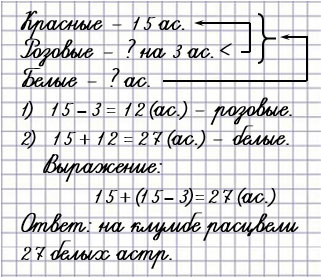 Красные – 15 ас.
Розовые – ? на 3 ас. <
Белые – ? ас.
1) 15 – 3 = 12 (ас.) – розовые.
2) 15 + 12 = 27 (ас.) – белые.
Выражение:
15 + (15 – 3) = 27 (ас.)
Ответ: на клумбе расцвели
27 белых астр.